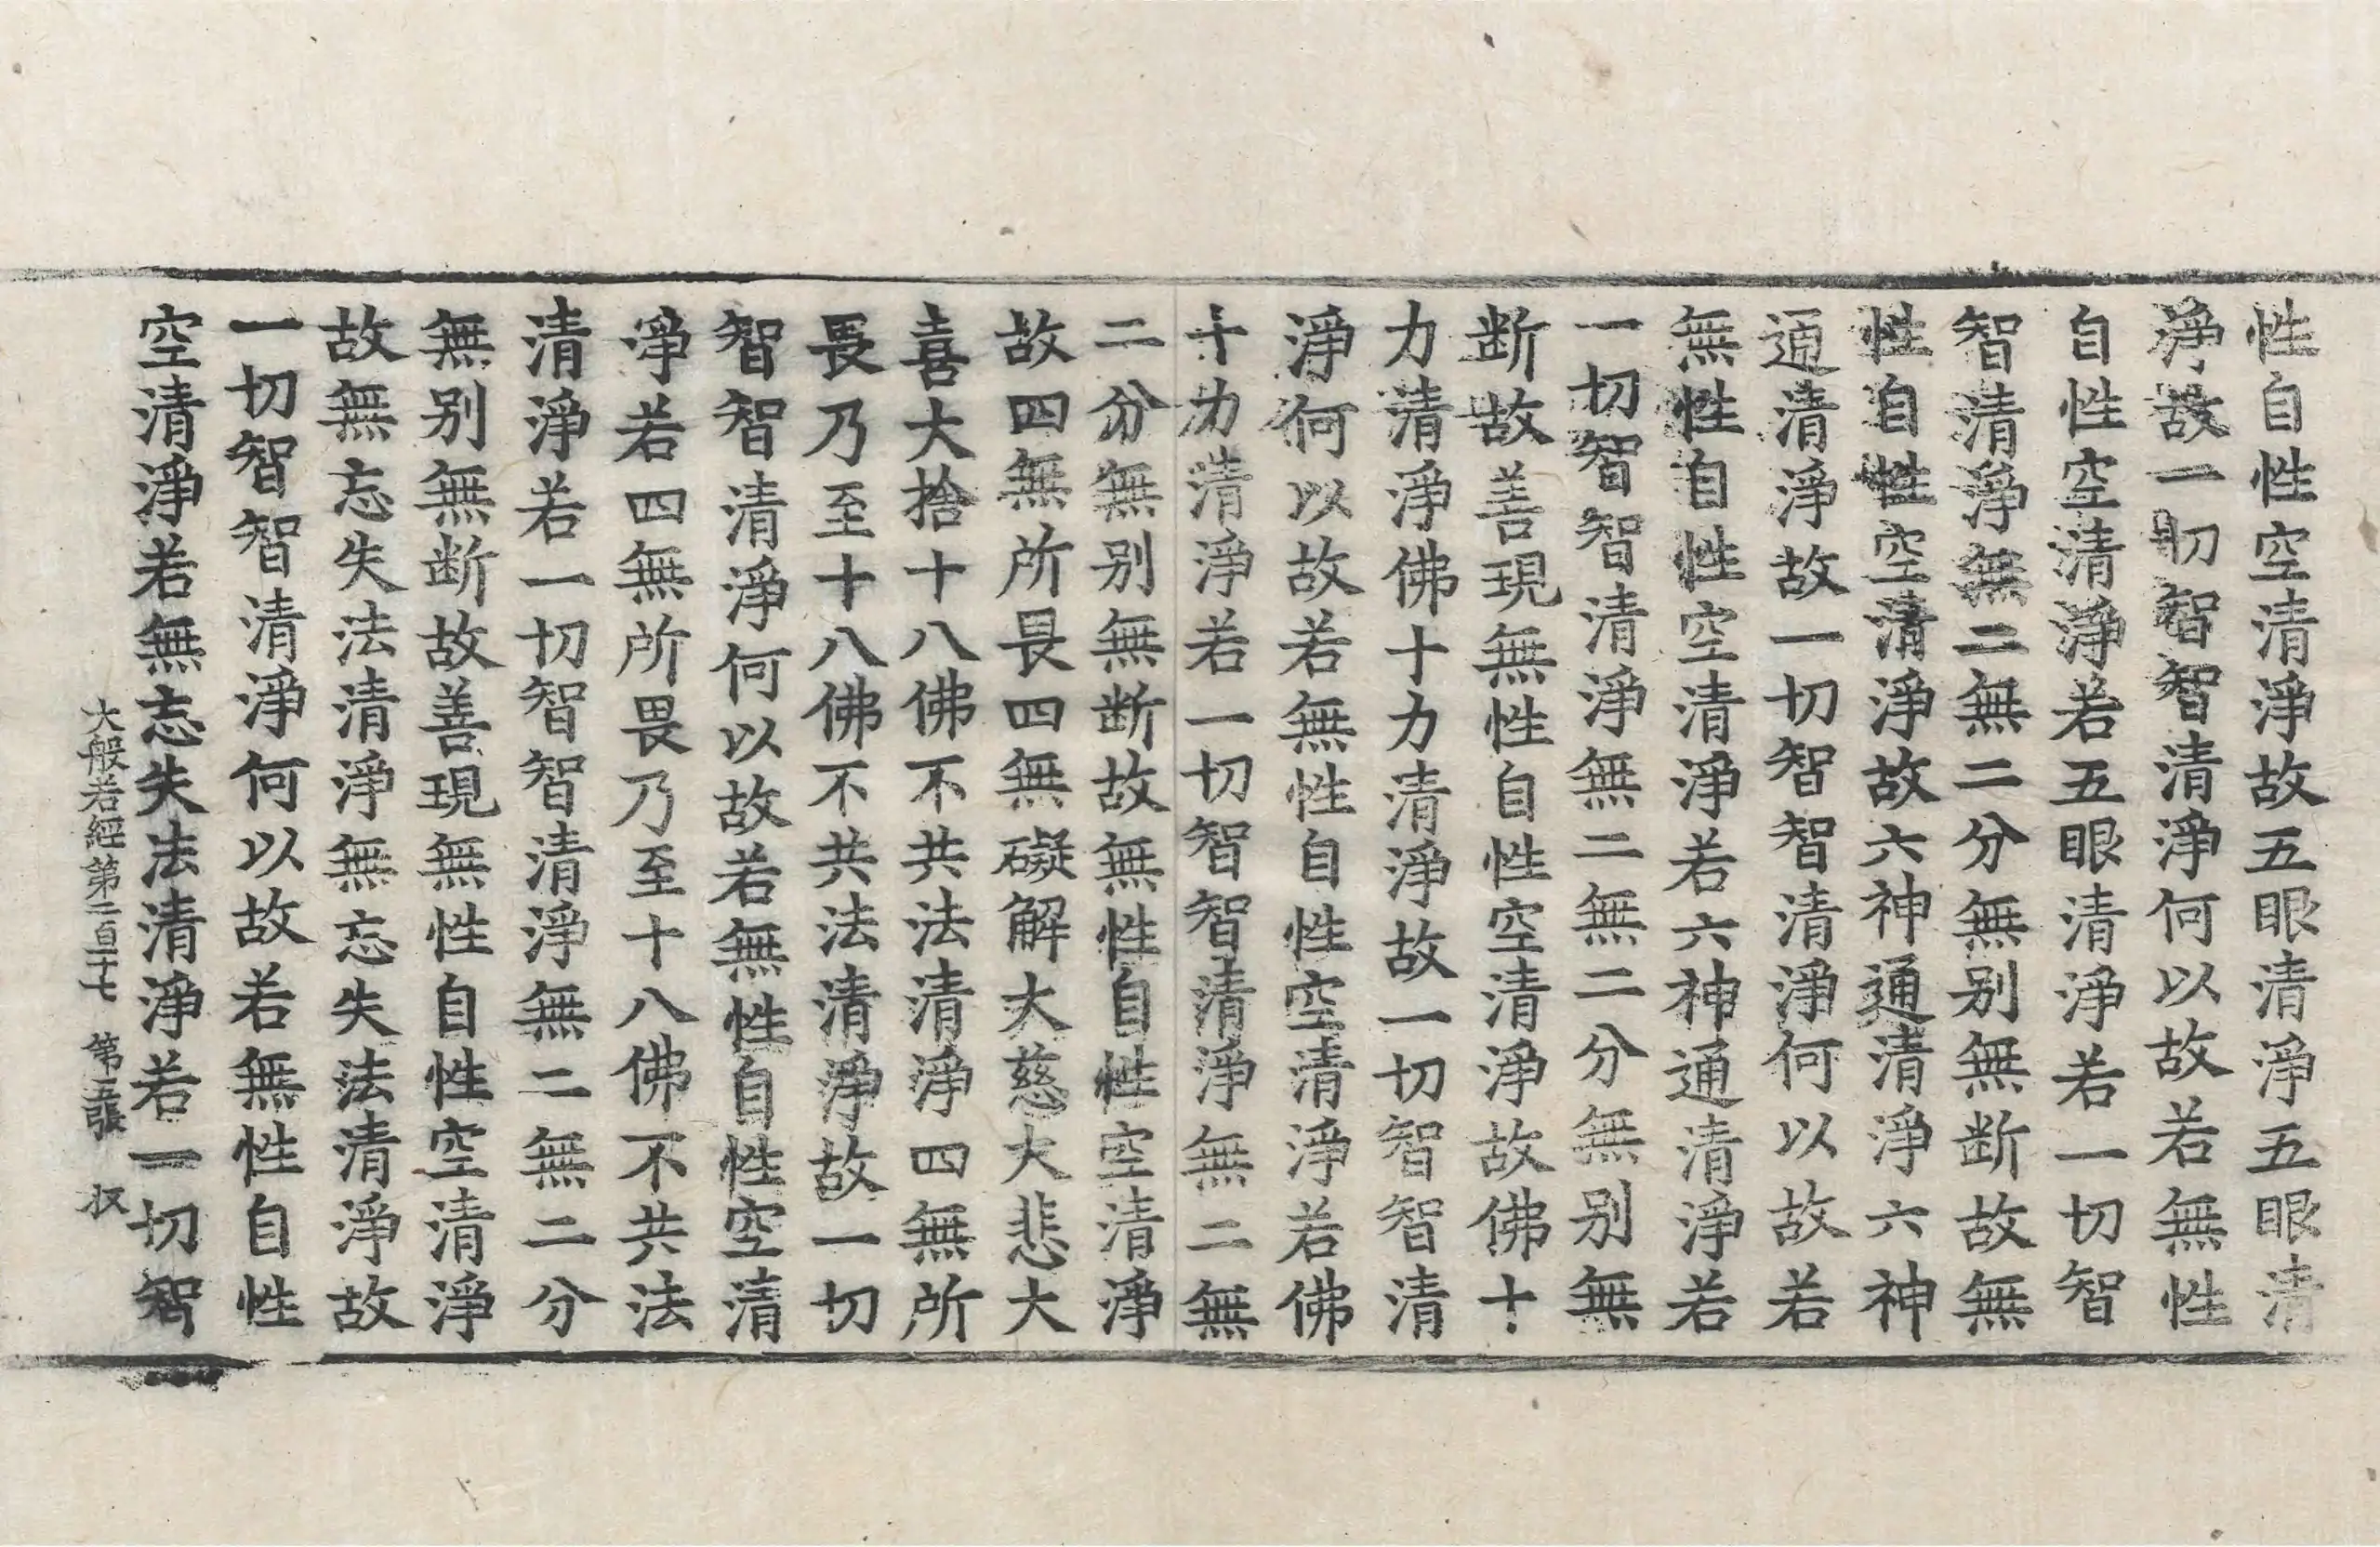 性自性空清淨故五眼清淨五眼清
淨故一切智智清淨何以故若無性
自性空清淨若五眼清淨若一切智
智清淨無二無二分無别無断故無
性自性空清淨故六神通清淨六神
通清淨故一切智智清淨何以故若
無性自性空清淨若六神通清淨若
一切智智清淨無二無二分無别無
断故善現無性自性空清淨故佛十
力清淨佛十力清淨故一切智智清
淨何以故若無性自性空清淨若佛
十力清淨若一切智智清淨無二無
二分無别無断故無性自性空清淨
故四無所畏四無礙解大慈大悲大
喜大捨十八佛不共法清淨四無所
畏乃至十八佛不共法清淨故一切
智智清淨何以故若無性自性空清
淨若四無所畏乃至十八佛不共法
清淨若一切智智清淨無二無二分
無别無断故善現無性自性空清淨
故無忘失法清淨無忘失法清淨故
一切智智清淨何以故若無性自性
空清淨若無忘失法清淨若一切智
大般若經第二百二十七 第五張 収